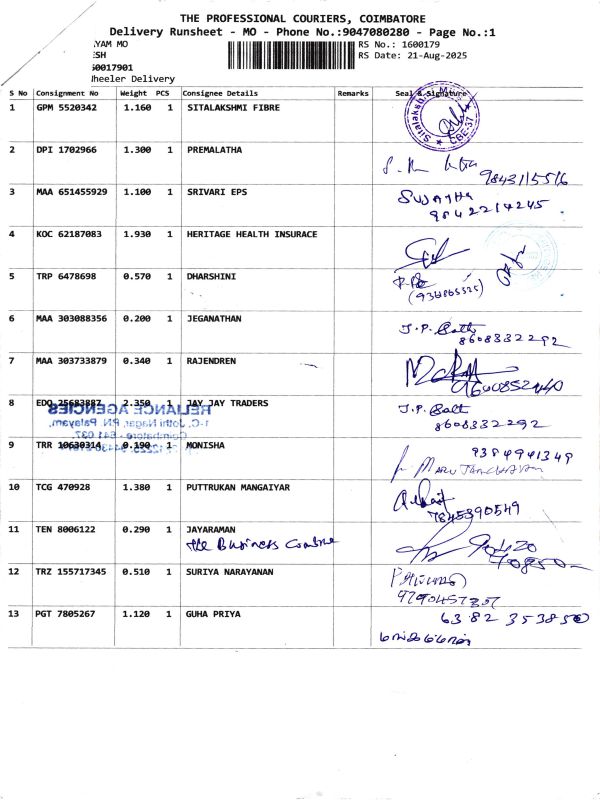 THE PROFESSIONAL COURIERS, COIMBATORE
Delivery Runsheet - MO - Phone No.:9047080280 - Page No.:1
.YAM MO RS No.: 1600179
ESH RS Date: 21-Aug-2025
60017901
Wheeler Delivery
S No Consignment No Weight PCS Consignee Details Remarks Seal & Signature
1 GPM 5520342 1.160 1 SITALAKSHMI FIBRE
CBE-37
2 DPI 1702966 1.300 1 PREMALATHA
9843115516
3 MAA 651455929 1.100 1 SRIVARI EPS
SUJATHA
9842214245
4 KOC 62187083 1.930 1 HERITAGE HEALTH INSURACE
5 TRP 6478698 0.570 1 DHARSHINI
6 MAA 303088356 0.200 1 JEGANATHAN
J.P.
8608332292
7 MAA 303733879 0.340 1 RAJENDREN
9600852440
8 EDO 25683887 2.350 1 JAY JAY TRADERS
RELIANCE AGENCIES
1-C, Jothi Nagar, P.N. Palayam,
Coimbatore - 641 037.
J.P.
8608332292
9 TRR 10630314 0.190 1 MONISHA
9384941349
10 TCG 470928 1.380 1 PUTTRUKAN MANGAIYAR
7845390549
11 TEN 8006122 0.290 1 JAYARAMAN
The Business Combine
90420
12 TRZ 155717345 0.510 1 SURIYA NARAYANAN
13 PGT 7805267 1.120 1 GUHA PRIYA
6382353850